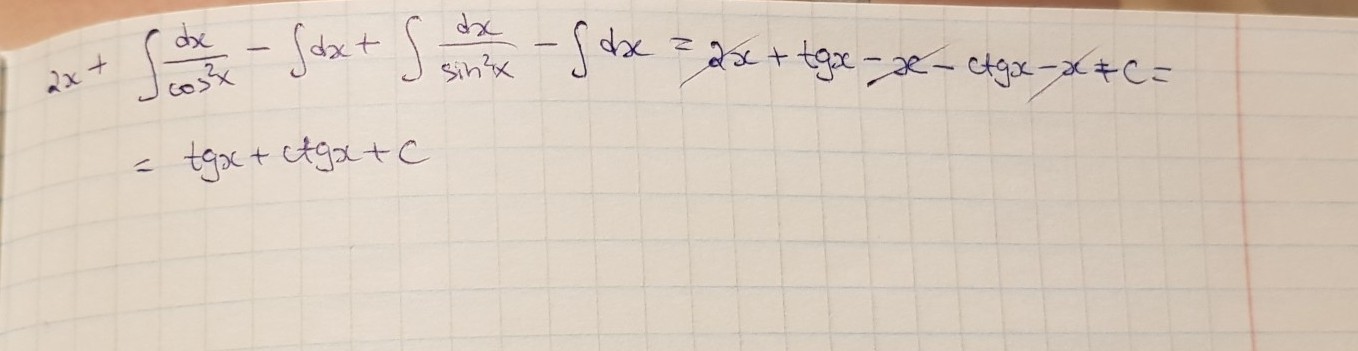 2x + ∫ dx/cos²x − ∫ dx + ∫ dx/sin²x − ∫ dx = 2x + tgx − x − ctgx − x + C =
= tgx + ctgx + C